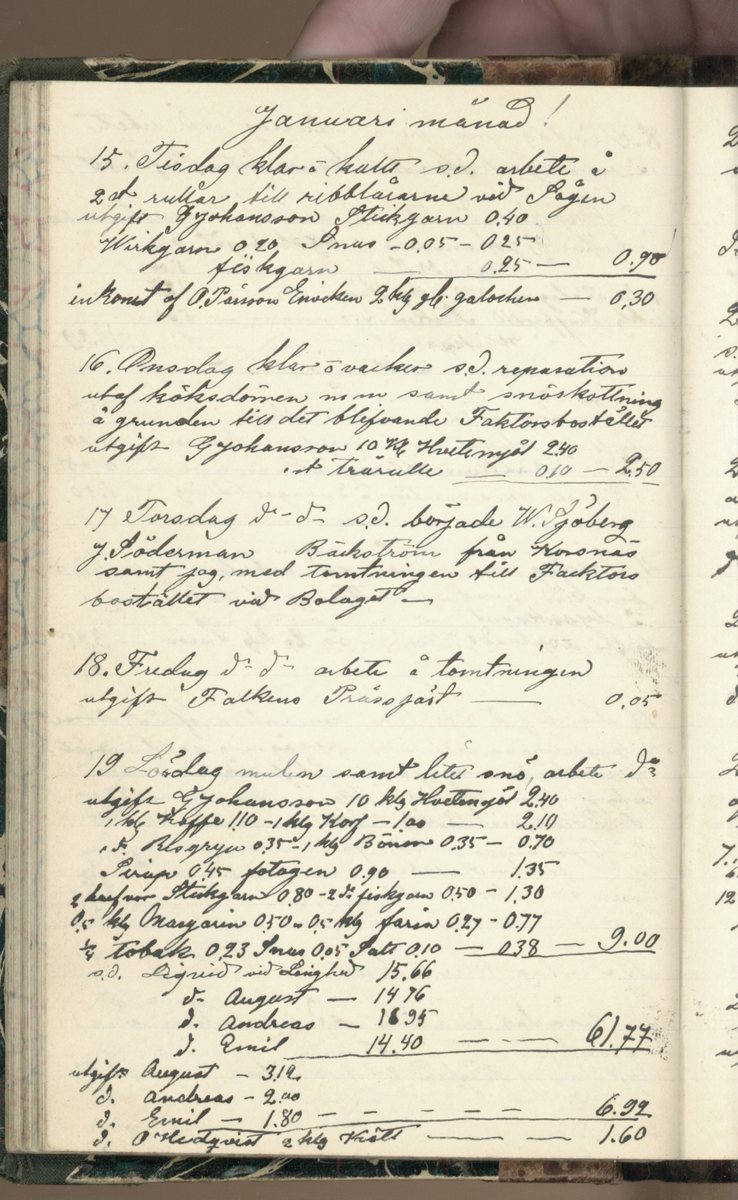 Januari månad!
15. Tisdag klar o kallt s.d. arbete å
2 st rullar till ribblåsarne vid Sågen
utgift GJohansson Stickgarn 0.40
Wirkgarn 0.20 Snus -0.05- 0.25
fiskgarn 0.25 — 0.90
inkomst af O. Pärsson Enviken 2 kg gl. galocher — 0,30
16. Onsdag klar o vacker s.d. reparation
utaf köksdörren m m samt snöskottning
å grunden till det blifvande Faktorsbostället
utgift GJohansson 10 Kg Hvetemjöl 2.40
1 st trärulle — 0.10 — 2.50
17 Torsdag d:o d:o s.d. började W. Sjöberg
J. Söderman Bäckström från Korsnäs
samt jag, med tomtningen till Facktors
bostället vid Bolaget —
18. Fredag d:o d:o arbete å tomtningen
utgift Falkens Prässjäst — 0.05
19 Lördag mulen samt litet snö, arbete d:o
utgift GJohansson 10 kg Hvetemjöl 2.40
1 kg Kaffe 1.10 - 1 kg Korf - 1.00 — 2.10
1 d. Risgryn 0.35 - 1 kg Bönor 0.35 - 0.70
Sirap 0.45 fotogen 0.90 — 1.35
2 härfvor Stickgarn 0.80 - 2 d:o fiskgarn 0.50 - 1.30
0.5 kg Margarin 0.50 - 0.5 kg farin 0.27 - 0.77
¼ tobak 0.23 Snus 0.05 Salt 0.10 — 0.38 — 9.00
s.d. Liqvid vid Linghed 15.66
d. August — 14.76
d. Andreas — 16.95
d. Emil 14.40 — — — 61.77
utgift August - 3.12
d. Andreas - 2.00
d. Emil — 1.80 — — — — 6.92
d. O Hedqvist 2 kg Kött — — 1.60